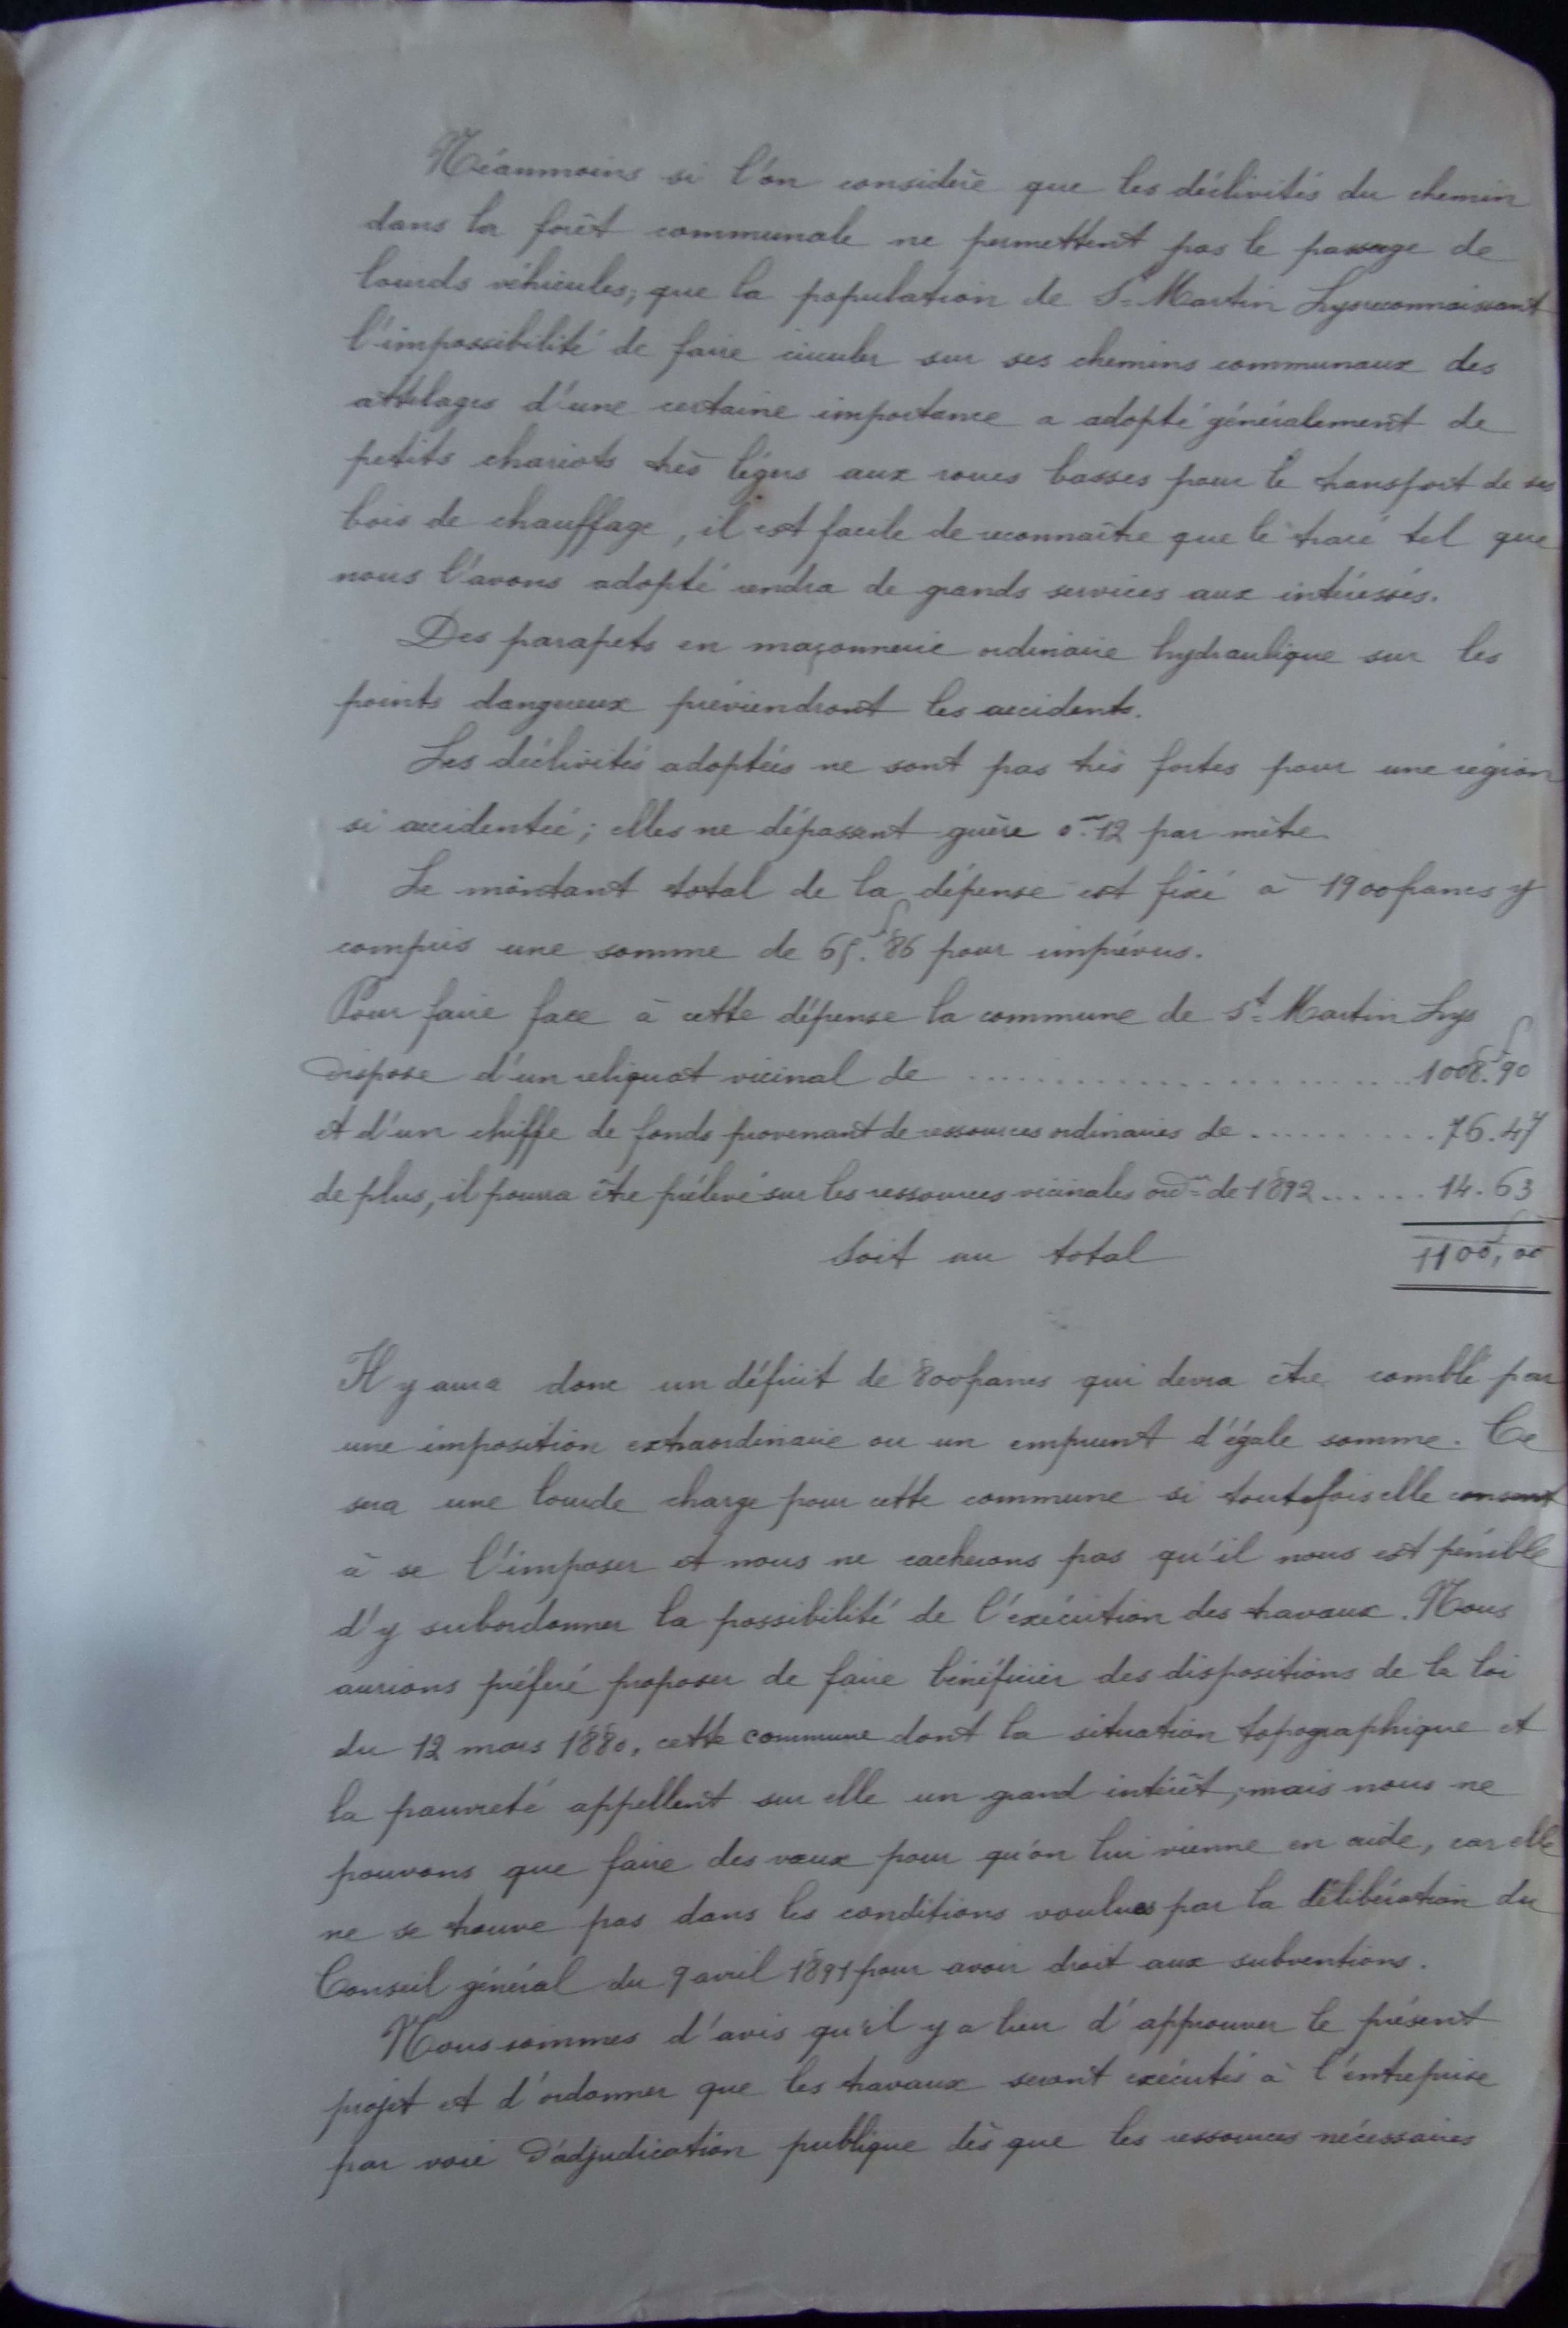 Néanmoins si l'on considère que les déclivités du chemin
dans la forêt communale ne permettent pas le passage de
lourds véhicules; que la population de S=Martin Lys reconnaissant
l'impossibilité de faire circuler sur ses chemins communaux des
attelages d'une certaine importance a adopté généralement de
petits chariots très légers aux roues basses pour le transport de ses
bois de chauffage, il est facile de reconnaître que le tracé tel que
nous l'avons adopté rendra de grands services aux intéressés.
Des parapets en maçonnerie ordinaire hydraulique sur les
points dangereux préviendront les accidents.
Les déclivités adoptées ne sont pas très fortes pour une région
si accidentée; elles ne dépassent guère 0m.12 par mètre.
Le montant total de la dépense est fixé à 1900 francs y
compris une somme de 65f.86 pour imprévus.
Pour faire face à cette dépense la commune de St= Martin Lys
dispose d'un reliquat vicinal de .......................... 1008f.90
et d'un chiffre de fonds provenant de ressources ordinaires de ........... 76.47
de plus, il pourra être prélevé sur les ressources vicinales ordres de 1892 ...... 14.63
Soit au total 1100f,00
Il y aura donc un déficit de 800 francs qui devra être comblé par
une imposition extraordinaire ou un emprunt d'égale somme. Ce
sera une lourde charge pour cette commune si toutefois elle consent
à se l'imposer et nous ne cacherons pas qu'il nous est pénible
d'y subordonner la possibilité de l'exécution des travaux. Nous
aurions préféré proposer de faire bénéficier des dispositions de la loi
du 12 mars 1880, cette commune dont la situation topographique et
la pauvreté appellent sur elle un grand intérêt, mais nous ne
pouvons que faire des vœux pour qu'on lui vienne en aide, car elle
ne se trouve pas dans les conditions voulues par la délibération du
Conseil général du 9 avril 1891 pour avoir droit aux subventions.
Nous sommes d'avis qu'il y a lieu d'approuver le présent
projet et d'ordonner que les travaux seront exécutés à l'entreprise
par voie d'adjudication publique dès que les ressources nécessaires